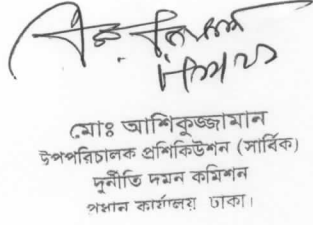 মোঃ আশিকুজ্জামান
উপপরিচালক প্রশিকিউশন (সার্বিক)
দুর্নীতি দমন কমিশন
প্রধান কার্যালয় ঢাকা।